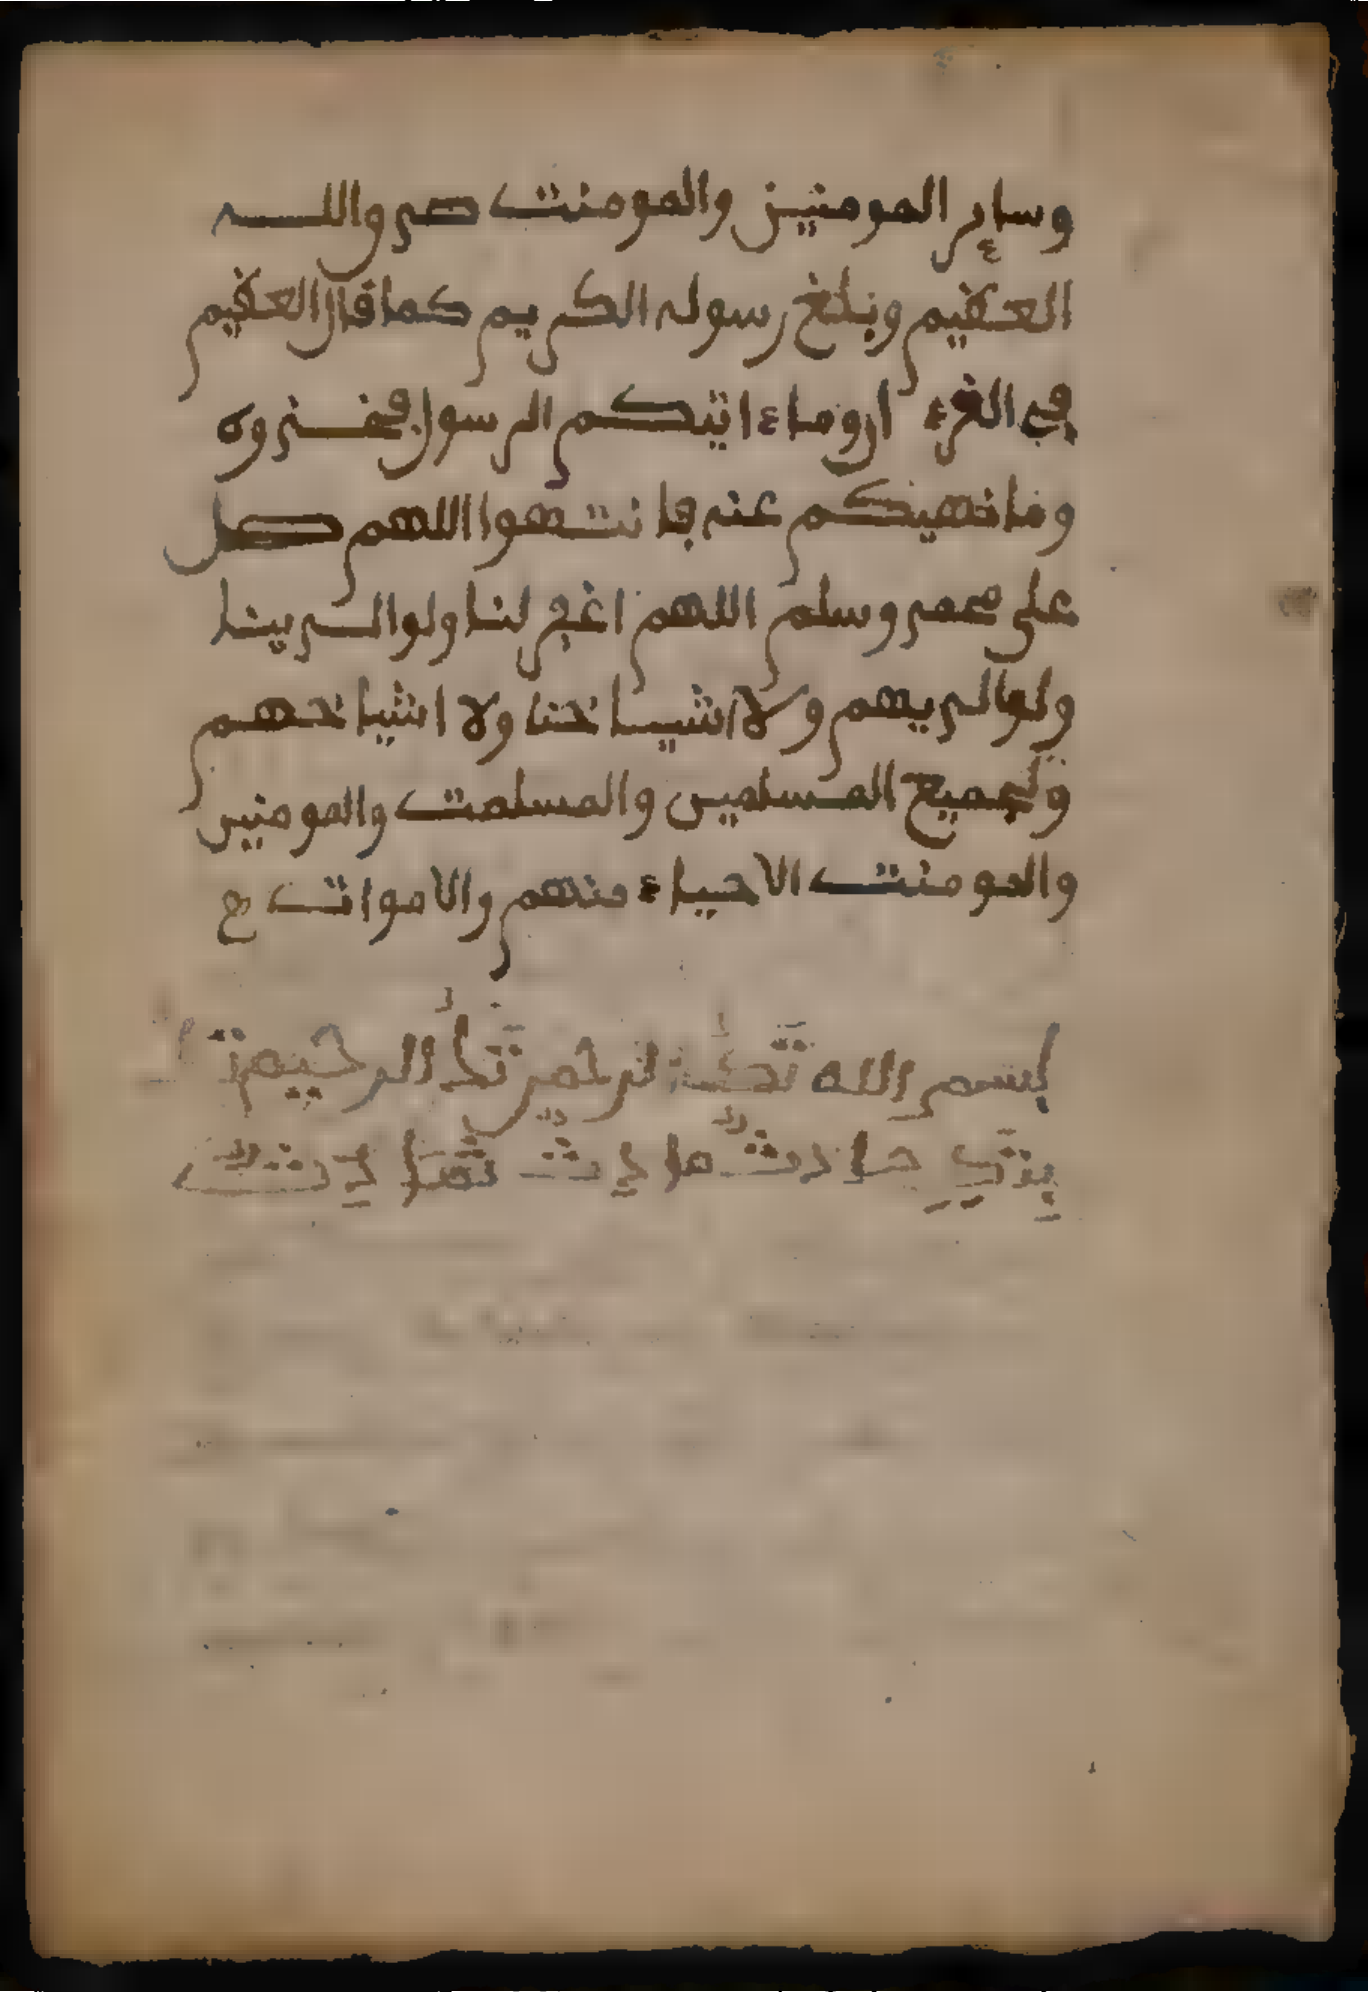 وساير المومنين والمومنت صدو الله
العظيم وبلغ رسوله الكريم كما قال العظيم
في القرءان وما ءاتيكم الرسول فخذوه
وما نهيكم عنه فانتهوا اللهم صل
على محمد وسلم اللهم اغفر لنا ولوالدينا
ولوالديهم ولاشياخنا ولا اشياخهم
ولجميع المسلمين والمسلمت والمومنين
والمومنت الاحياء منهم والاموات
بسم الله الرحمن الرحيم